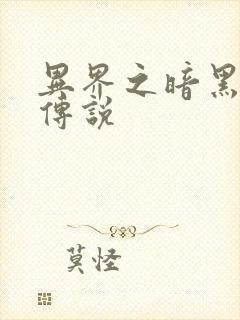 異界之暗黑
傳說
莫怪